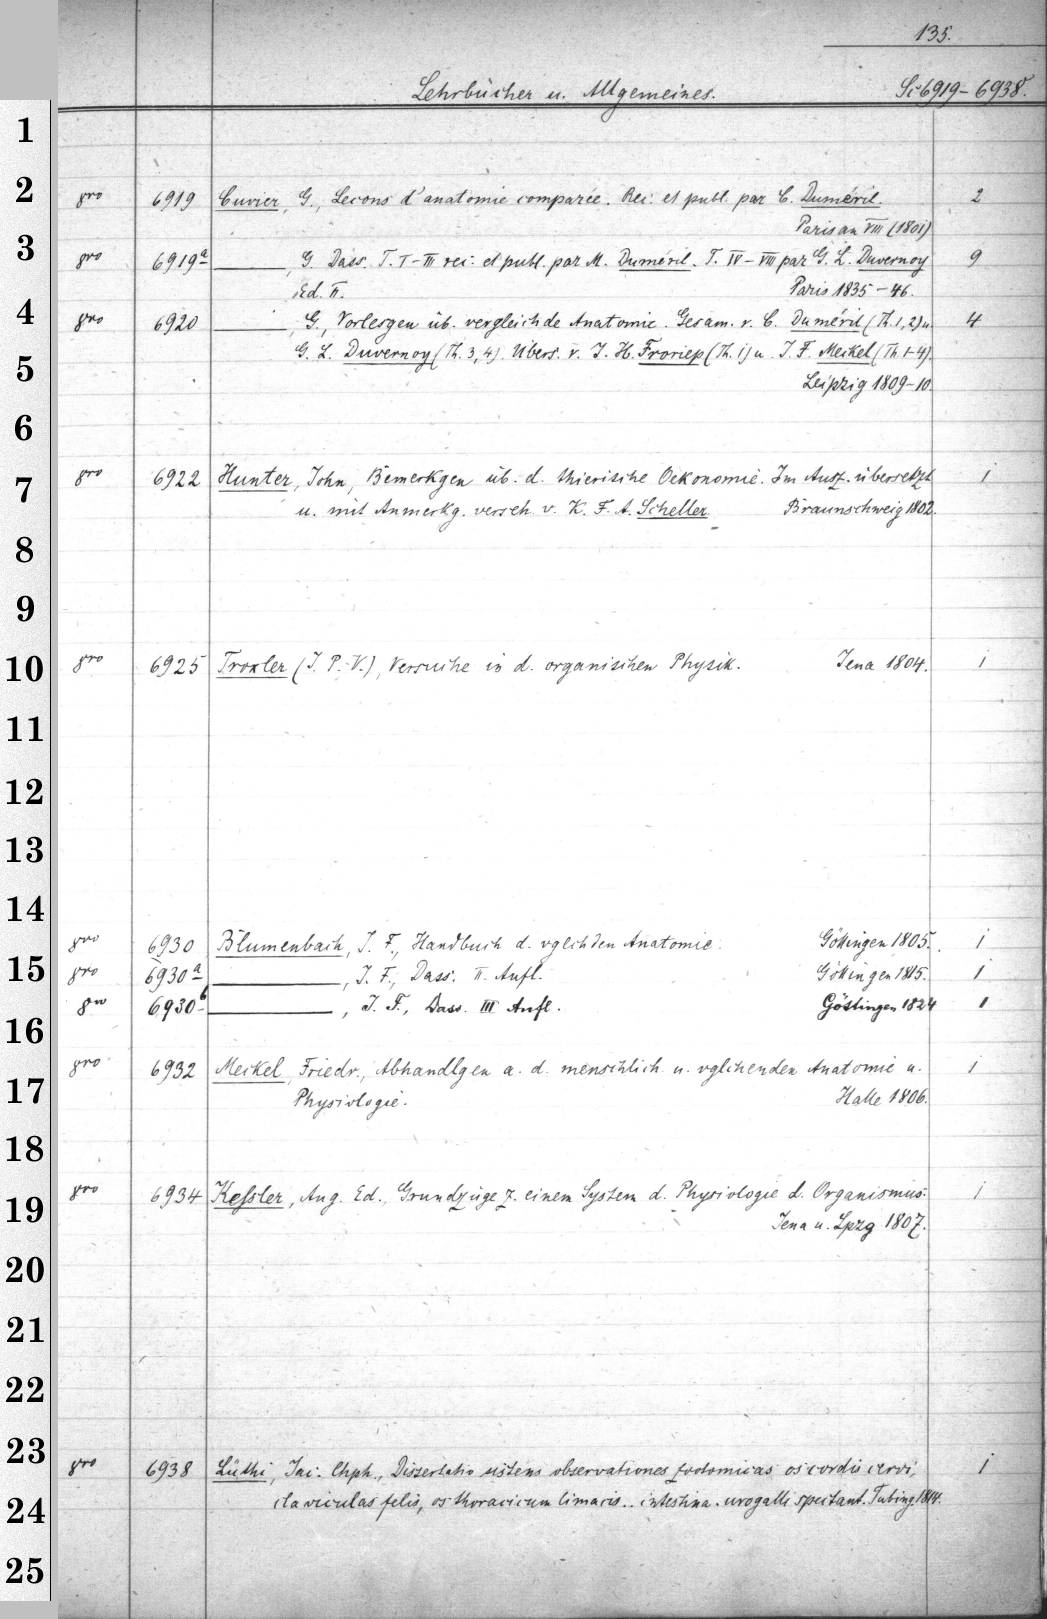 135.
Lehrbücher u. Allgemeines. Sc 6919-6938.
1
2
3
4
5
6
7
8
9
10
11
12
13
14
15
16
17
18
19
20
21
22
23
24
25
8vo 6919 Cuvier, G., Lecons d'anatomie comparée. Rec. et publ. par C. Duméril. 2
Paris an VIII (1801)
8vo 6919a ———, G. Dass. T. I-III rec. et publ. par M. Duméril. T. IV-VIII par G. L. Duvernoy 9
Ed. II. Paris 1835-46.
8vo 6920 ———, G., Vorlesgen üb. vergleichde Anatomie. Gesam. v. C. Duméril (Th. 1, 2) u. 4
G. L. Duvernoy (Th. 3, 4). Übers. v. I. H. Froriep (Th. 1) u. I. F. Meckel (Th. 1-4).
Leipzig 1809-10.
8vo 6922 Hunter, John, Bemerkgen üb. d. thierische Oekonomie. Im Ausz. übersetzt 1
u. mit Anmerkg. verseh. v. K. F. A. Scheller. Braunschweig 1802.
8vo 6925 Troxler (I. P. V.), Versuche in d. organischen Physik. Jena 1804. 1
8vo 6930 Blumenbach, I. F., Handbuch d. vglchden Anatomie. Göttingen 1805. 1
8vo 6930a ———, I. F., Dass. II. Aufl. Göttingen 1815. 1
8vo 6930b ———, I. F., Dass. III Aufl. Göttingen 1824 1
8vo 6932 Meckel, Friedr., Abhandlgen a. d. menschlich. u. vglchenden Anatomie u. 1
Physiologie. Halle 1806.
8vo 6934 Keſsler, Aug. Ed., Grundzüge z. einem System d. Physiologie d. Organismus. 1
Jena u. Lpzg 1807.
8vo 6938 Lüthi, Jac. Chph., Dissertatio sistens observationes zootomicas os cordis cervi, 1
claviculas felis, os thoracicum limacis.. intestina. urogalli spectant. Tubing. 1814.